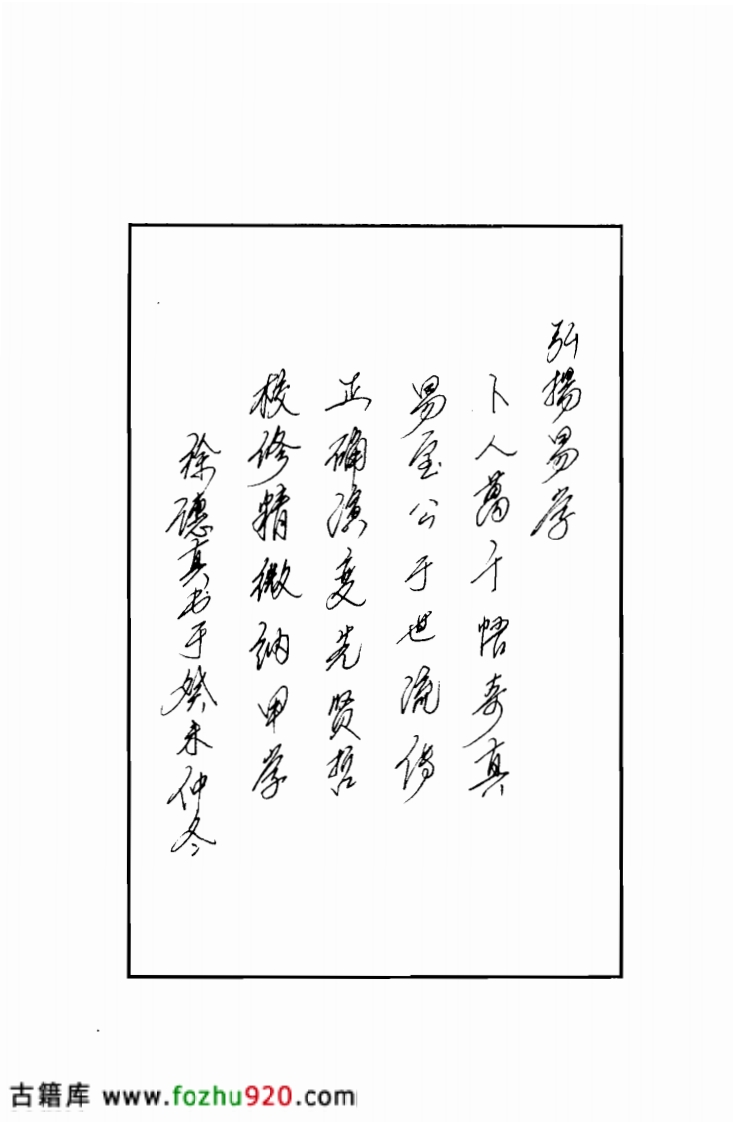 弘揚易学
卜人萬千悟奇真
易至公于世流传
正确演变先贤哲
校修精微纳甲学
徐德真书于癸未仲冬
古籍库 www.fozhu920.com